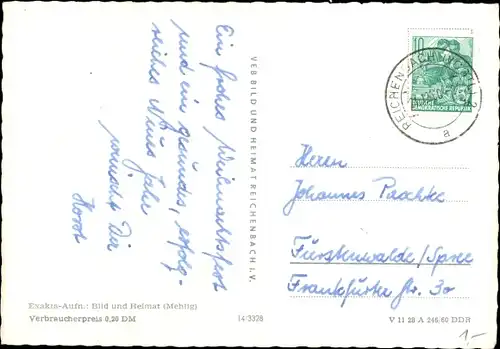 Ein frohes Weihnachtsfest
und ein gesundes, erfolg-
reiches Neues Jahr
wünscht Dir
Horst
VEB BILD UND HEIMAT REICHENBACH I. V.
10
DEUTSCHE
DEMOKRATISCHE REPUBLIK
REICHENBACH (VOGTL) 2
a
Herrn
Johannes Paschke
Fürstenwalde/Spree
Frankfurter Str. 30
Exakta-Aufn.: Bild und Heimat (Mehlig)
Verbraucherpreis 0,20 DM
14/3378
V 11 28 A 246/60 DDR
1-